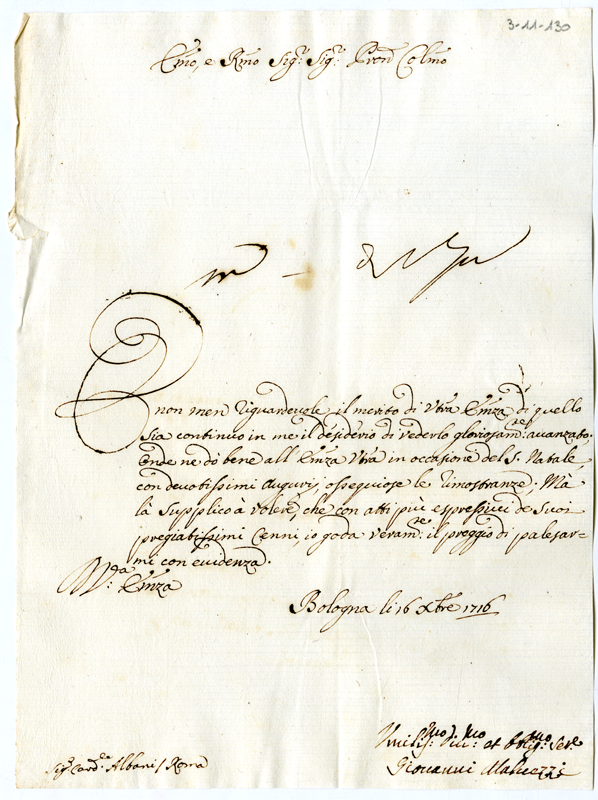 3-11-130
Emo, e Rmo Sig.r Sig.r Pron Colmo
È non men riguardevole il merito di Vtra Emza di quello
sia continuo in me il desiderio di vederlo gloriosam.te avanzato.
Onde ne dò bene all Emza Vtra in occasione del S. Natale
con devotissimi Auguri, ossequiose le rimostranze; Ma
là supplico à volere, che con atti più espressivi de suoi
pregiatissimi Cenni, io goda veram.te il preggio di palesar=
mi con evidenza.
Emza
Bologna li 16 Xbre 1716
Umilis.mo Div.mo et Obblig.mo Sere
Giovanni Malvezzi
Sig.r Card.le Albani / Roma